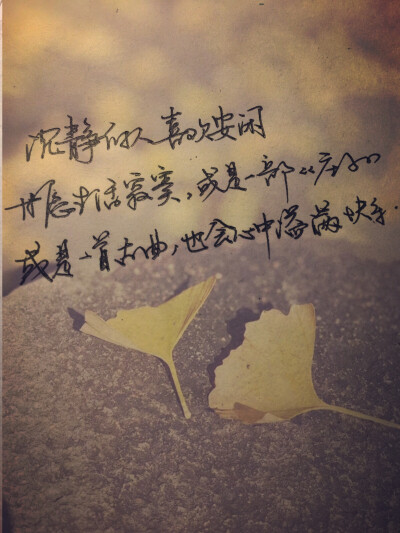 沉静的人喜欢安闲
生活寂寞，或是一部《庄子》
或是一首古曲，也会心中满快乐.